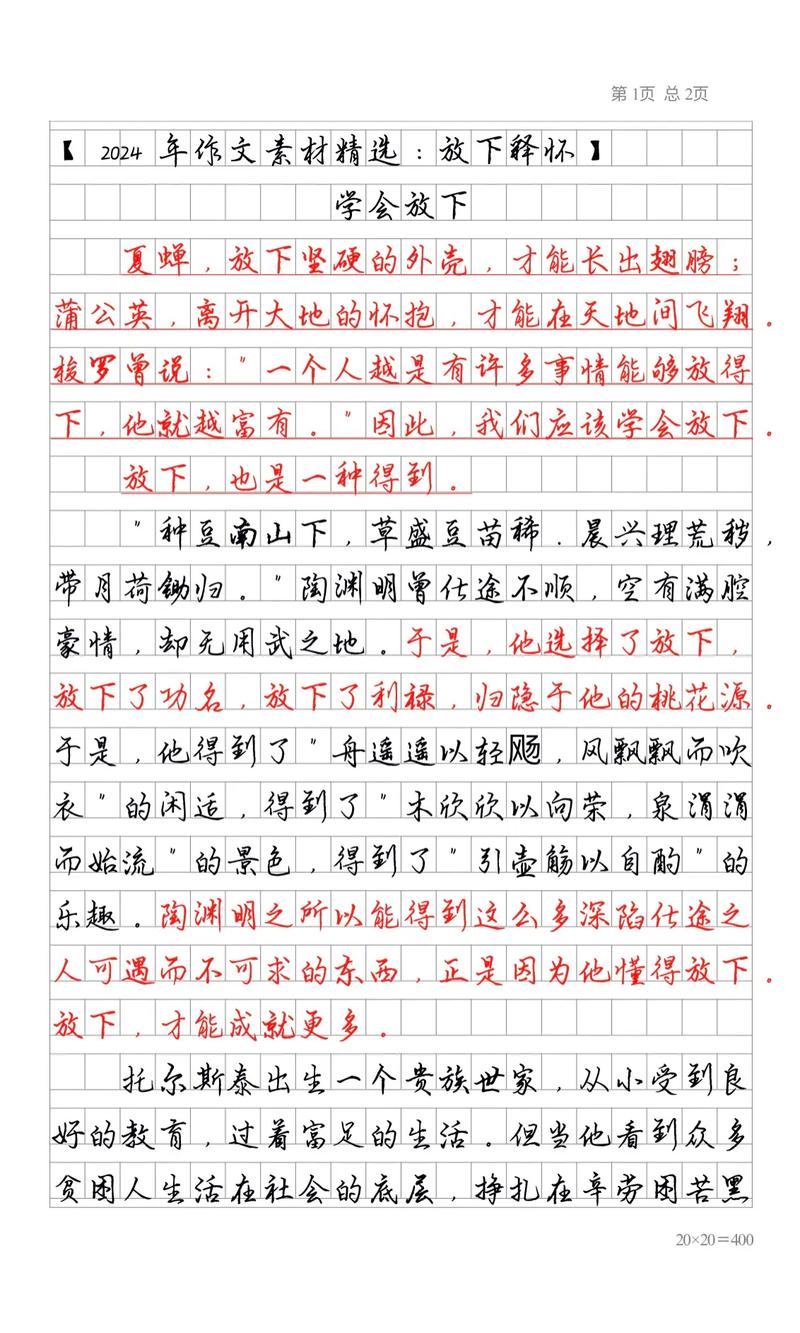 第1页 总2页
【 2024 年作文素材精选：放下释怀】
学会放下
夏蝉，放下坚硬的外壳，才能长出翅膀；
蒲公英，离开大地的怀抱，才能在天地间飞翔。
梭罗曾说："一个人越是有许多事情能够放得
下，他就越富有。"因此，我们应该学会放下。
放下，也是一种得到。
"种豆南山下，草盛豆苗稀．晨兴理荒秽，
带月荷锄归。"陶渊明曾仕途不顺，空有满腔
豪情，却无用武之地。于是，他选择了放下，
放下了功名，放下了利禄，归隐于他的桃花源。
于是，他得到了"舟遥遥以轻飏，风飘飘而吹
衣"的闲适，得到了"木欣欣以向荣，泉涓涓
而始流"的景色，得到了"引壶觞以自酌"的
乐趣。陶渊明之所以能得到这么多深陷仕途之
人可遇而不可求的东西，正是因为他懂得放下。
放下，才能成就更多。
托尔斯泰出生一个贵族世家，从小受到良
好的教育，过着富足的生活。但当他看到众多
贫困人生活在社会的底层，挣扎在辛劳困苦黑
20×20＝400